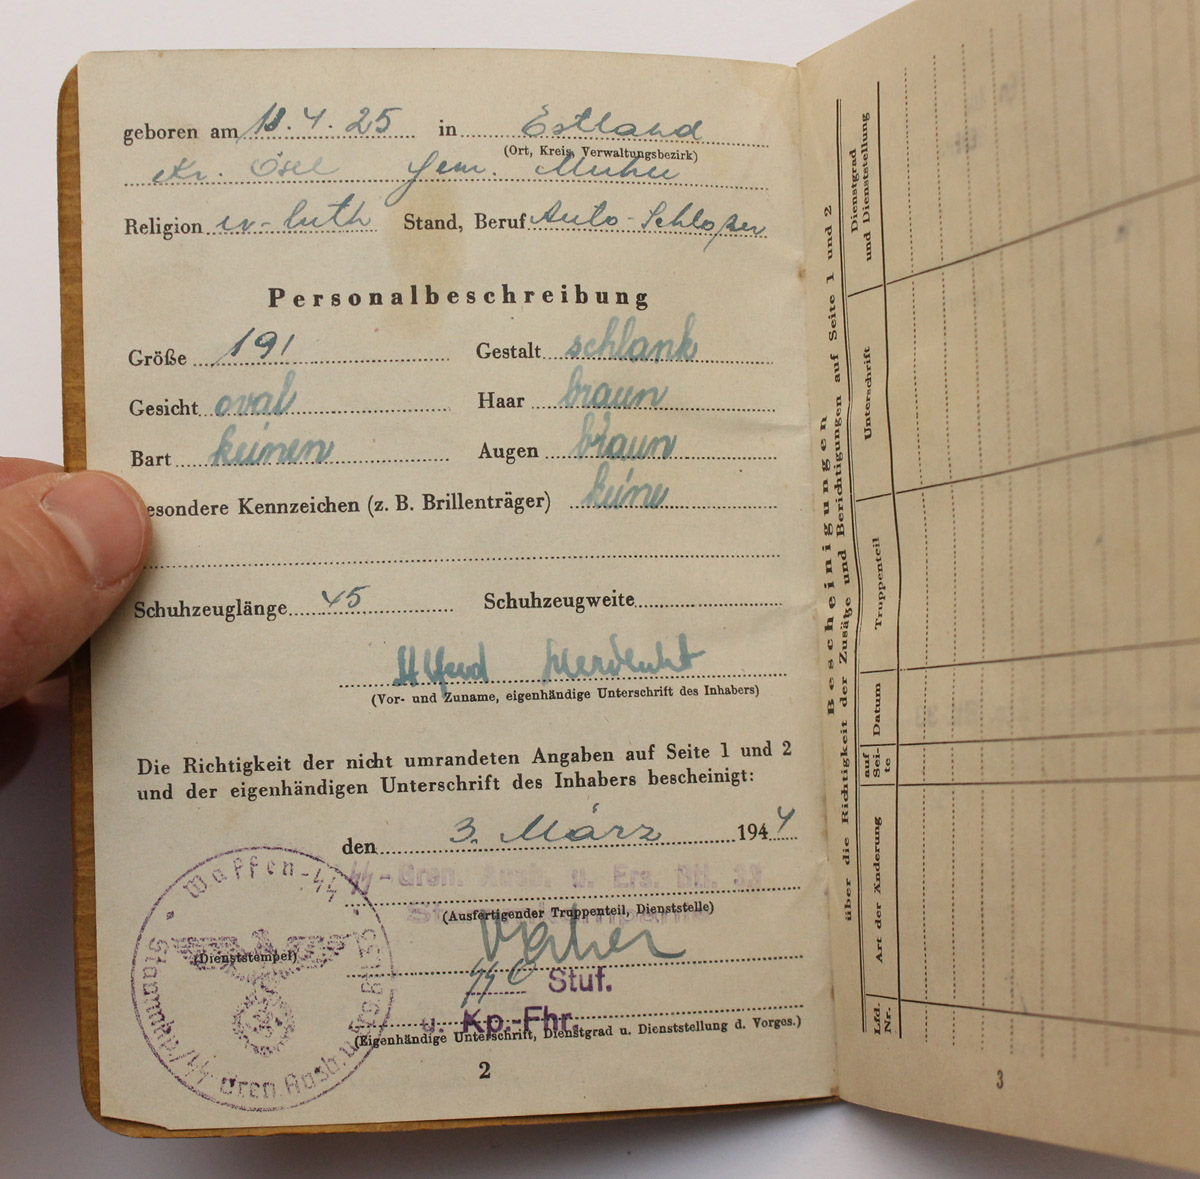 geboren am 18.4.25 in Estland
(Ort, Kreis, Verwaltungsbezirk)
Kr. Ösel Gem. Muhu
Religion ev-luth Stand, Beruf Auto-Schloßer
Personalbeschreibung
Größe 191 Gestalt schlank
Gesicht oval Haar braun
Bart keinen Augen braun
esondere Kennzeichen (z. B. Brillenträger) keine
Schuhzeuglänge 45 Schuhzeugweite
(Vor- und Zuname, eigenhändige Unterschrift des Inhabers)
Die Richtigkeit der nicht umrandeten Angaben auf Seite 1 und 2
und der eigenhändigen Unterschrift des Inhabers bescheinigt:
den 3. März 1944
SS-Gren. Ausb. u. Ers. Btl. 33
(Ausfertigender Truppenteil, Dienststelle)
Waffen-SS
(Dienststempel)
SS O Stuf.
u. Kp.-Fhr.
(Eigenhändige Unterschrift, Dienstgrad u. Dienststellung d. Vorges.)
2
Bescheinigungen
über die Richtigkeit der Zusätze und Berichtigungen auf Seite 1 und 2
Lfd. Nr.
Art der Änderung
auf Sei-te
Datum
Truppenteil
Unterschrift
Dienstgrad und Dienststellung
3